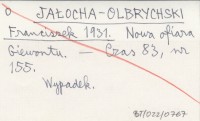 0 JAŁOCHA-OLBRYCHSKI
Franciszek 1931. Nowa ofiara
Giewontu. – Czas 83, nr
155.
Wypadek.
BJ/022/0767